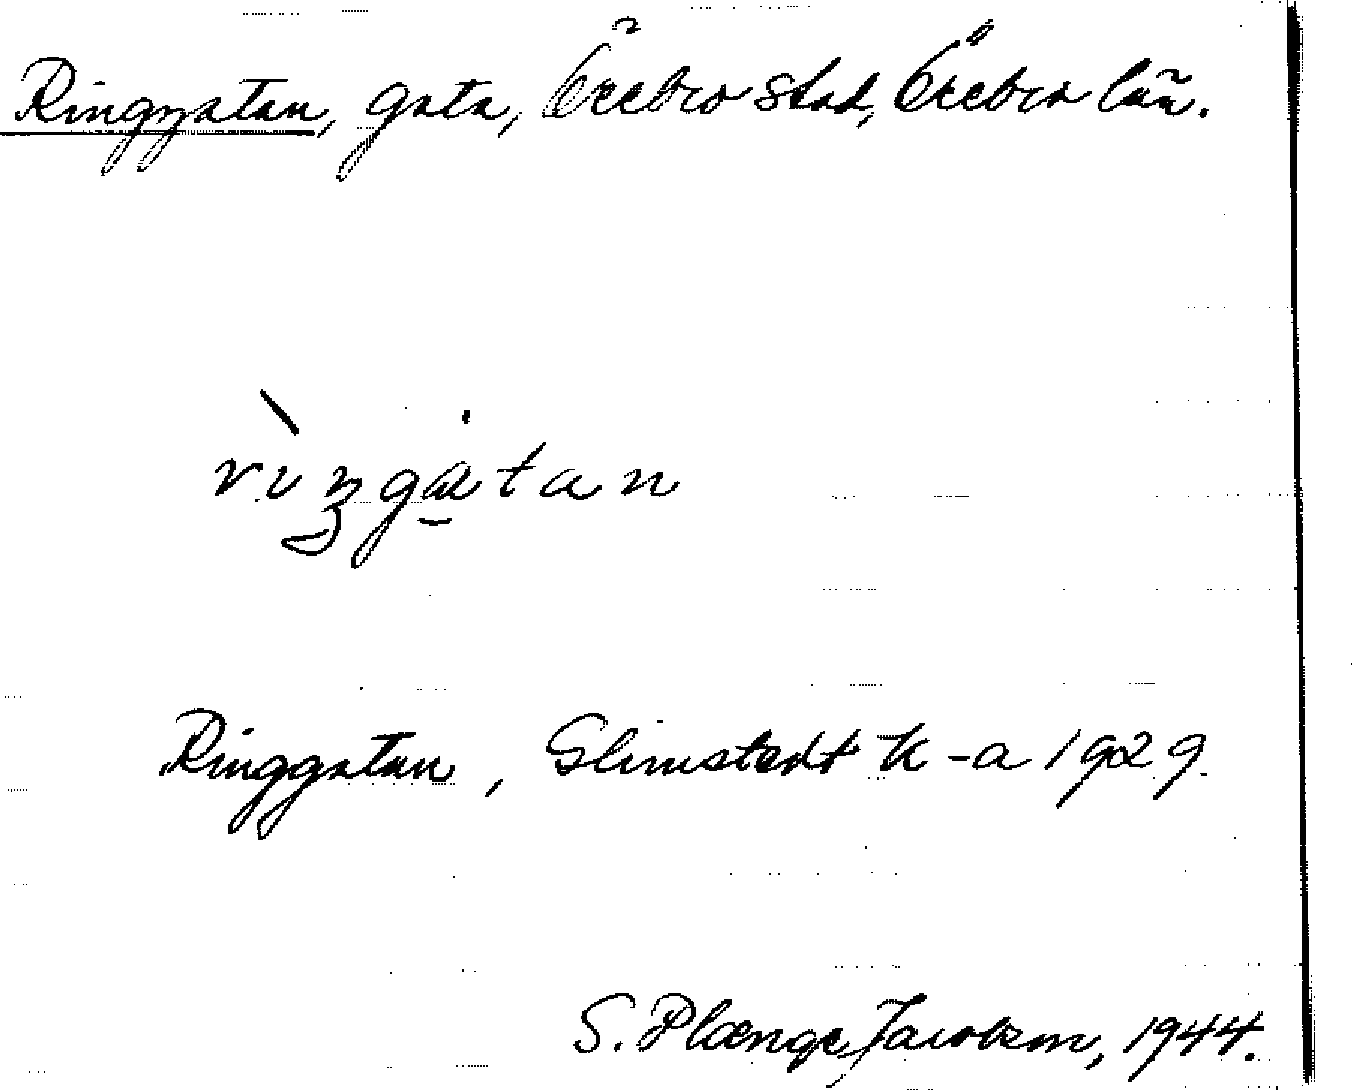 Ringgatan, gata, Örebro stad, Örebro län.
rıŋgɑ̀tan
Ringgatan, Glimstedt k-a 1929.
S. Plænge Jacobson, 1944.